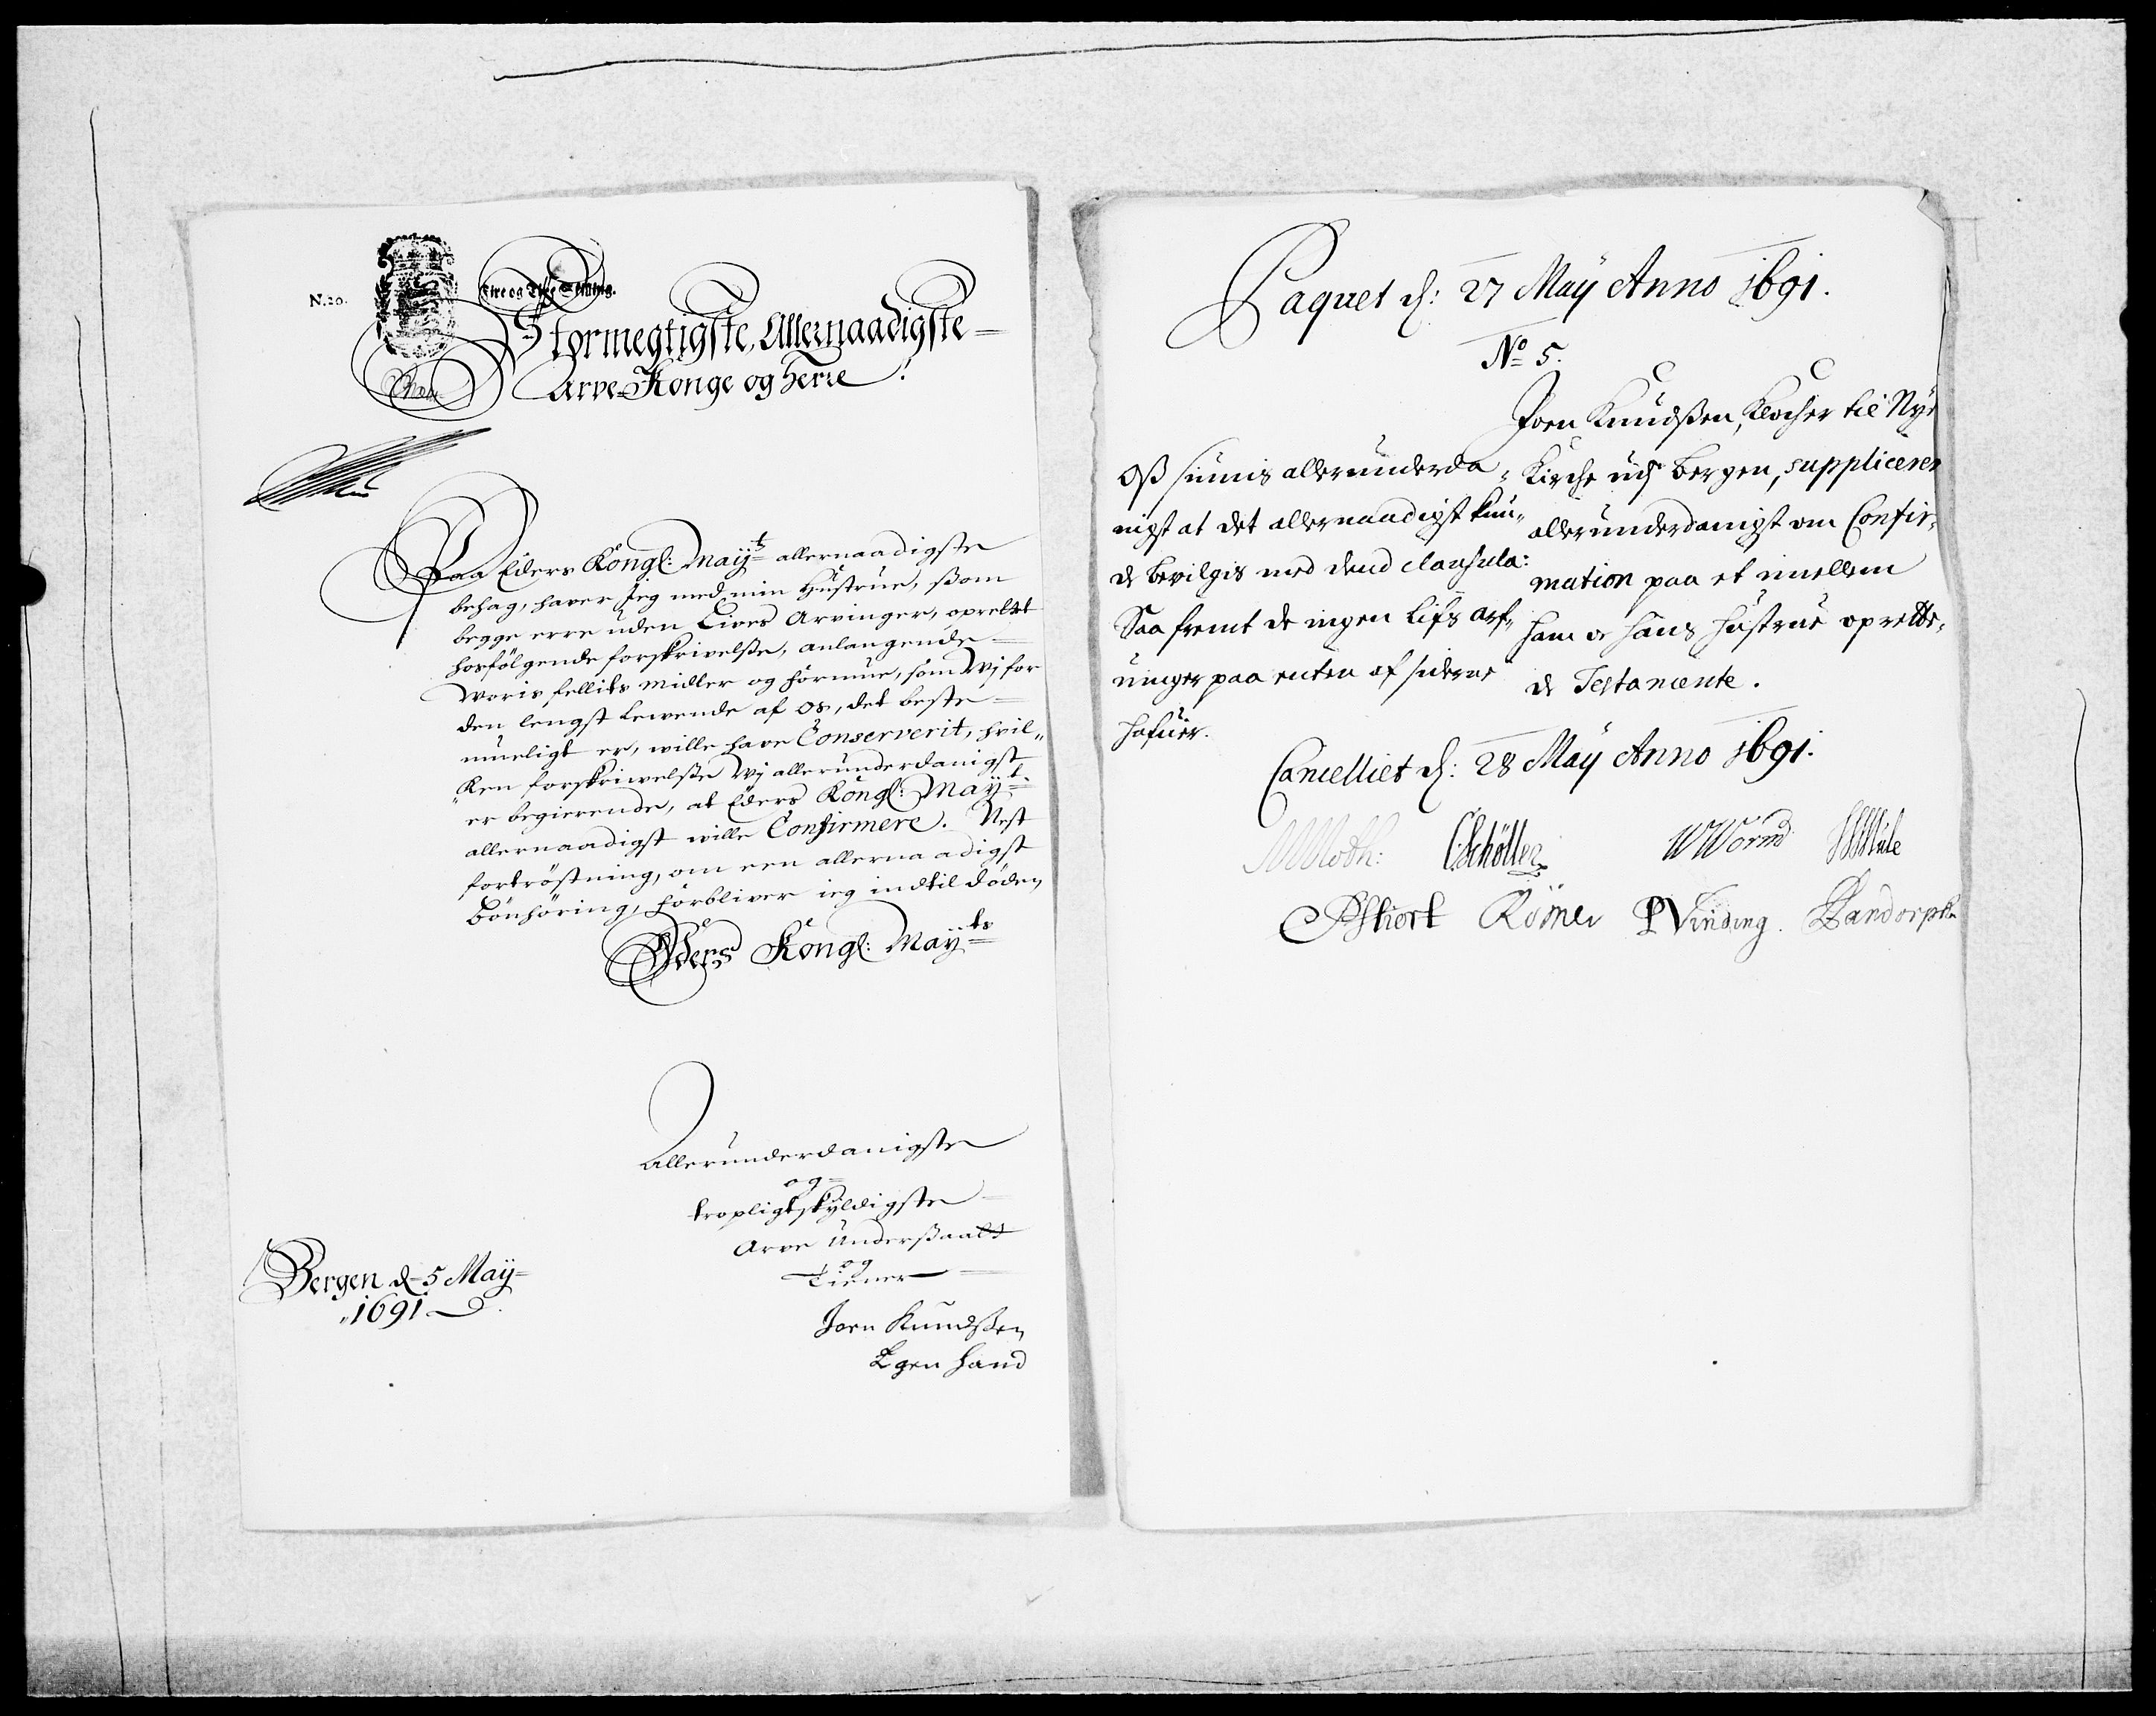 N. 20.
Fire og Tive Skilling.
Stormegtigste, Allernaadigste
Arve-Konge og Herre!
Paa Eders Kongl: Mayts allernaadigste
behag, haver Jeg med min Hustrue, ßom
begge erre uden Livs Arvinger, oprettet
hosfölgende forskrivelse, anlangende
Woris fellits midler og formue, som Wj for
den lengst lewende af os, det beste
mueligt er, wille have Conserverit, hvil„
„ken forskriwelse Wj allerunderdanigst
er begierende, at Eders Kongl: Mayt.
allernaadigst wille Confirmere. Nest
fortröstning, om een allernaadigst
Bönhöring, forbliver ieg indtil döden
Eders Kongl: Mayts
Allerunderdanigste
og
tropligtskyldigste
Arve Underßaatt
og
Tiener
Joen Knudßen
Egen Hand
Bergen d. 5 Maÿ
1691
Paquet d: 27 Maÿ Anno 1691.
No 5.
Joen Knudßen, Klocher til Nye
Kirche udj Bergen, supplicerer
allerunderdanigst om Confir„
mation paa et imellem
ham oc hans Hustrue oprette„
de Testamente.
Oß siunis allerunderda„
nigst at det allernaadigst kun„
de bevilgis med dend clausula:
Saa fremt de ingen Lifs Arf„
uinger paa enten af siderne
hafuer.
Cancelliet d: 28 Maÿ Anno 1691.
MMoth: CSchöller WWorm HMule
Römer PVinding